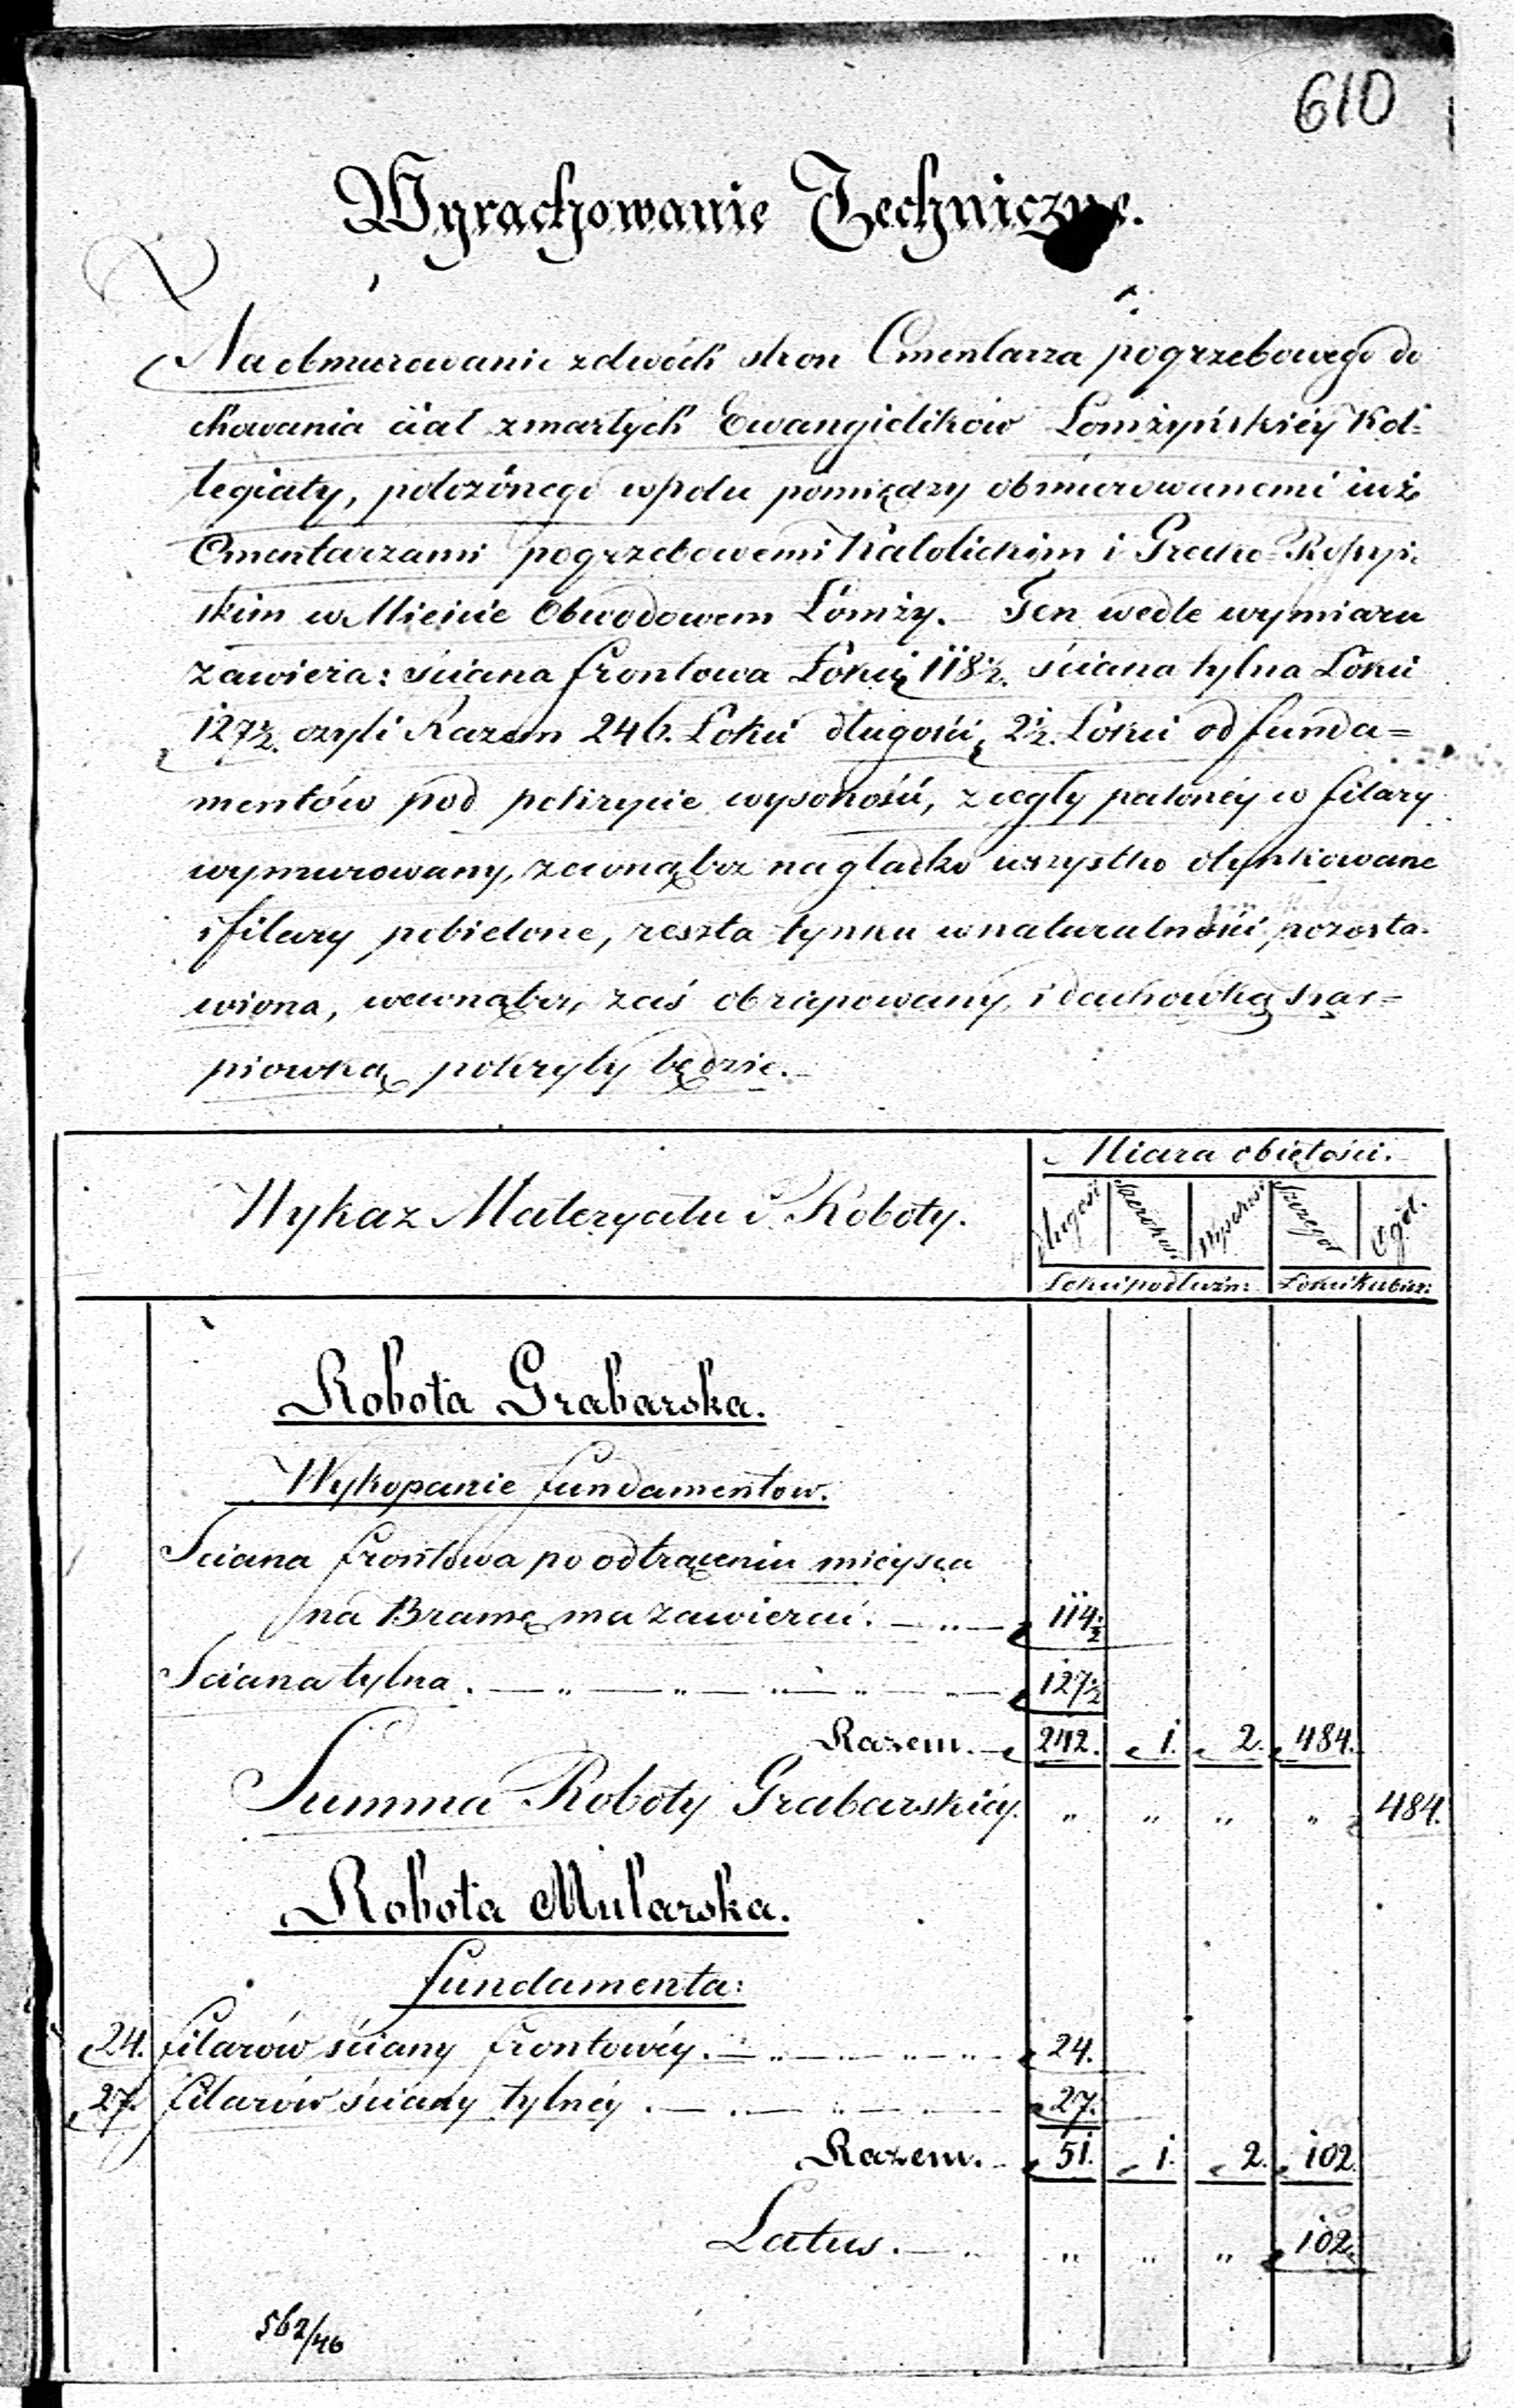 610
Wyrachowanie Techniczne.
Na obmurowanie z dwóch stron Cmentarza pogrzebowego do
chowania ciał zmarłych Ewangielików Łomżyńskiéy Kol-
legiaty, położonego w polu pomiędzy obmurowanemi iuż
Cmentarzami pogrzebowemi Katolickim i Greko-Rossyi-
skim w Mieście Obwodowem Łomży. Ten wedle wymiaru
zawiera: ściana frontowa Łokci 118½. ściana tylna Łokci
127½. czyli Razem 246. Łokci długości, 2½. Łokci od funda=
mentów pod pokrycie wysokości, z cegły paloney w filary
wymurowany, zewnątrz na gładko wszystko otynkowane
i filary pobielone, reszta tynku w naturalności pozosta-
wiona, wewnątrz, zaś obrapowany, i dachówką kar=
piowką pokryty będzie.
Wykaz Materyału i Roboty.
Miara obiętości.
długość Szerokoś. Wysokoś. Szczegó Ogół.
Łokci podłużn: Łokci Kubicz:
Robota Grabarska.
Wykopanie fundamentow.
Sciana frontowa po odtrąceniu mieysca
na Bramę ma zawierać. — „ — 114½
Sciana tylna. — „ — „ — „ — „ — „ — 127½
Razem. — 242. 1. 2. 484.
Summa Roboty Grabarskiéy. „ „ „ „ 484.
Robota Mularska.
fundamenta:
24. filarów ściany frontowéy. — „ — „ — „ — „ — 24.
27. filarów ściany tylnéy. — „ — „ — „ — 27.
Razem. — 51. 1. 2. 102.
Latus. — „ „ „ „ 102.
562/46